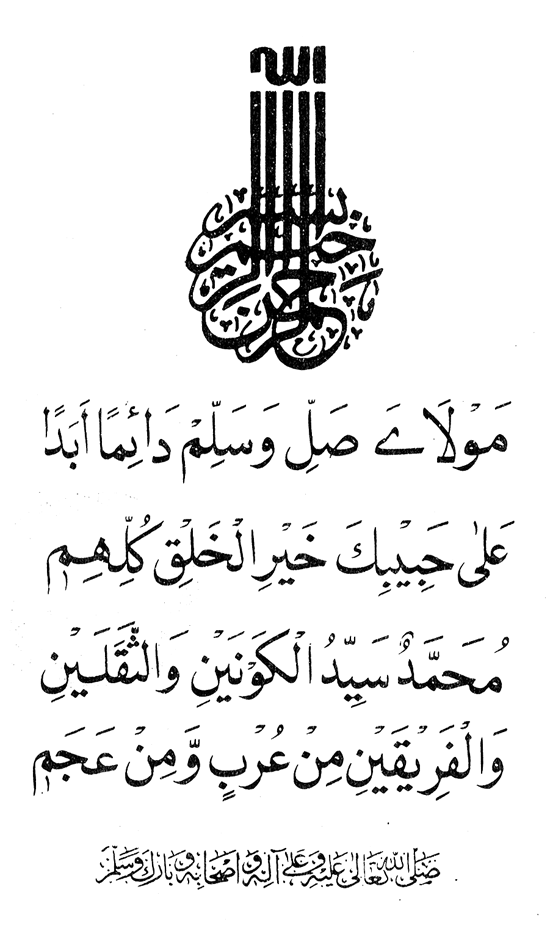 بسم الله الرحمن الرحيم
مَوْلَاىَ صَلِّ وَسَلِّمْ دَائِمًا اَبَدًا
عَلٰى حَبِيْبِكَ خَيْرِ الْخَلْقِ كُلِّهِمِ
مُحَمَّدٌ سَيِّدُ الْكَوْنَيْنِ وَالثَّقَلَيْنِ
وَالْفَرِيْقَيْنِ مِنْ عُرْبٍ وَّمِنْ عَجَمِ
صَلَّى اللّٰهُ تَعَالٰى عَلَيْهِ وَعَلٰى آلِهٖ وَاَصْحَابِهٖ وَبَارَكَ وَسَلَّمَ